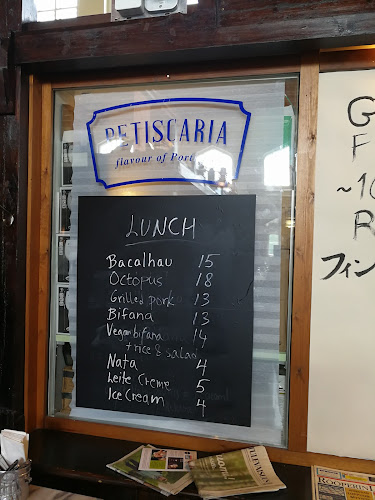 PETISCARIA
flavour of Port
LUNCH
Bacalhau 15
Octopus 18
Grilled pork 13
Bifana 13
Vegan bifana 14
+ rice & salad
Nata 4
Leite Creme 5
Ice Cream 4
G
F
~10
R
フィン